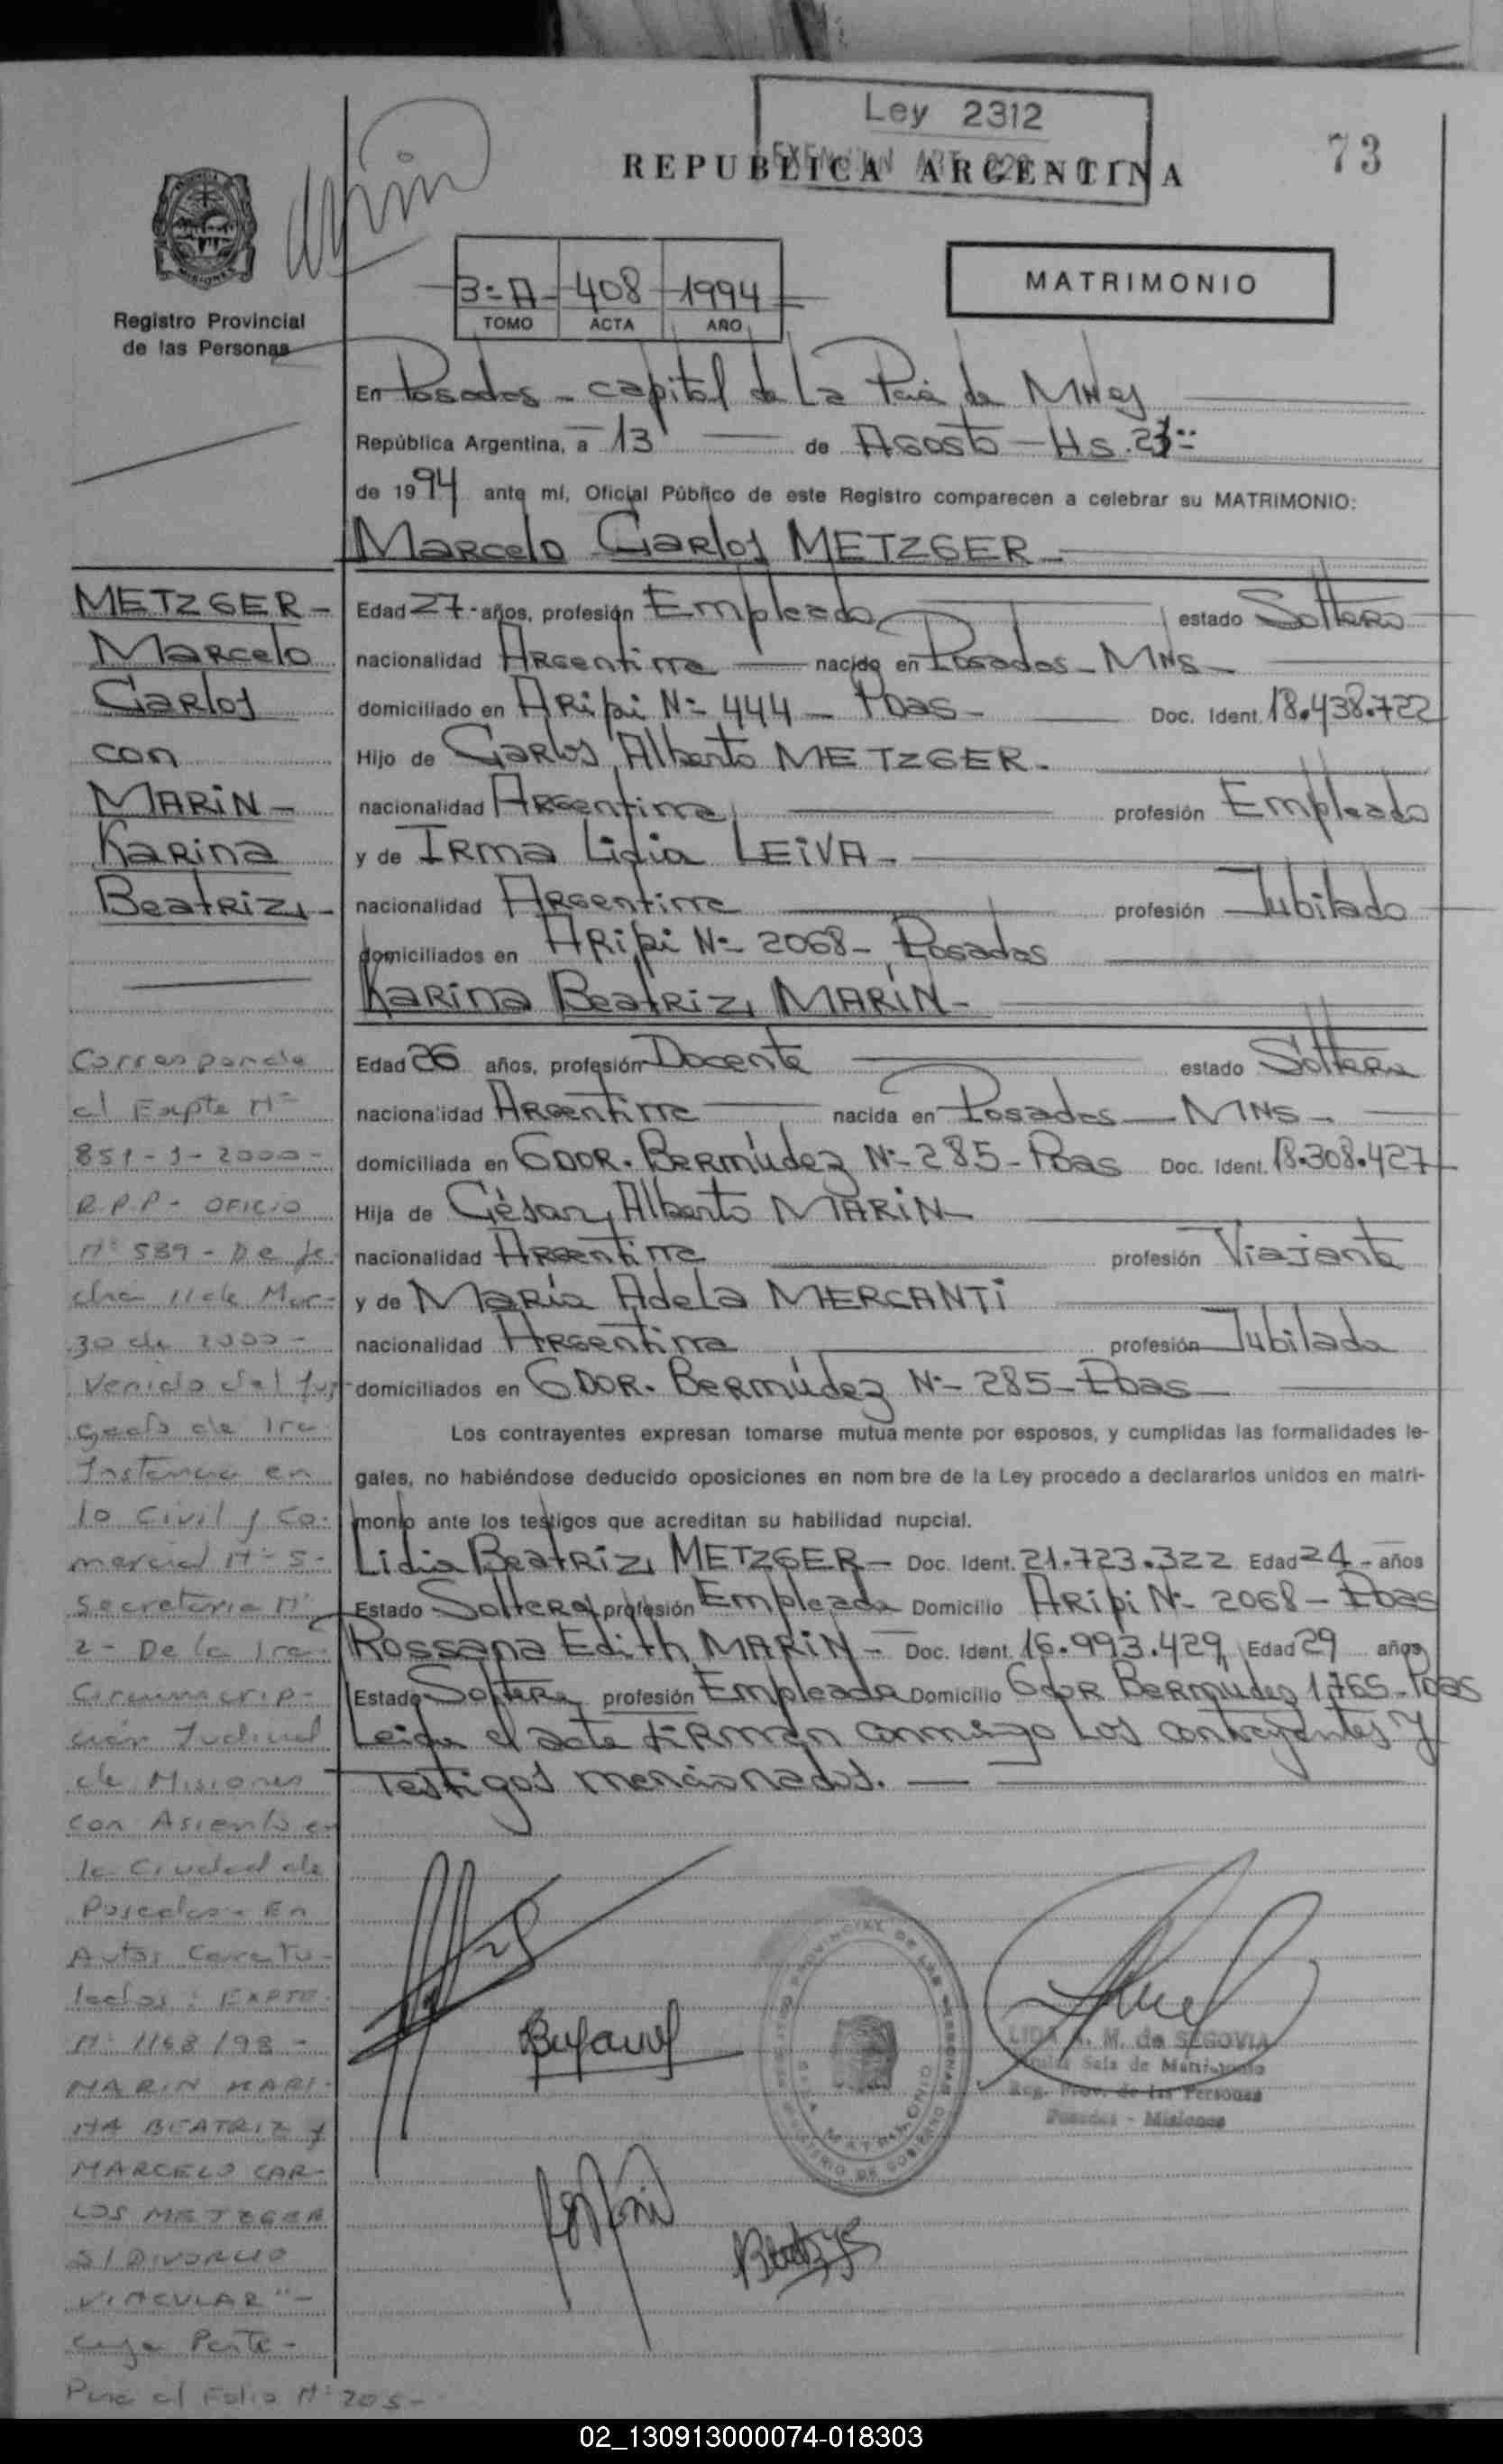 Ley 2312
REPUBLICA ARGENTINA
73
MISIONES
Registro Provincial
de las Personas
3=A- 408 1994
TOMO ACTA AÑO
MATRIMONIO
En Posadas - capital de La Pcia de Mnes
República Argentina, a 13 de Agosto - Hs.
de 1994 ante mí, Oficial Público de este Registro comparecen a celebrar su MATRIMONIO:
Marcelo Carlos METZGER
METZGER-
Marcelo
Carlos
con
MARIN-
Karina
Beatriz,-
Edad 27- años, profesión Empleado estado Soltero
nacionalidad Argentina nacido en Posadas - MNS -
domiciliado en Aripi Nº 444 - Pdas - Doc. Ident. 18.438.722
Hijo de Carlos Alberto METZGER.
nacionalidad Argentina profesión Empleado
y de Irma Lidia LEIVA -
nacionalidad Argentina profesión Jubilado
domiciliados en Aripi Nº 2068 - Posadas
Karina Beatriz, MARIN -
Edad 26 años, profesión Docente estado Soltera
nacionalidad Argentina nacida en Posadas - MNS -
domiciliada en GDOR. Bermúdez Nº 285 - Pdas Doc. Ident. 18.308.427
Hija de César, Alberto MARIN
nacionalidad Argentina profesión Viajante
y de María Adela MERCANTI
nacionalidad Argentina profesión Jubilada
domiciliados en GDOR. Bermúdez Nº 285 - Pdas -
Los contrayentes expresan tomarse mutua mente por esposos, y cumplidas las formalidades le-
gales, no habiéndose deducido oposiciones en nom bre de la Ley procedo a declararlos unidos en matri-
monio ante los testigos que acreditan su habilidad nupcial.
Lidia Beatriz, METZGER - Doc. Ident. 21.723.322 Edad 24 - años
Estado Soltera profesión Empleada Domicilio Aripi Nº 2068 - Pdas
Rossana Edith MARIN - Doc. Ident. 16.993.429 Edad 29 años
Estado Soltera profesión Empleada Domicilio Gdor Bermudez 1765 - Pdas
Leida el acta firman conmigo los contrayentes y
Testigos mencionados.
Corresponde
al Expte Nº
851-J-2000-
R.P.P - OFICIO
Nº 539 - De fe-
cha 11 de Mar-
zo de 2000 -
Venido del Juz-
gado de 1ra
Instancia en
lo Civil y Co-
mercial Nº 5-
Secretaria Nº
2 - De la 1ra
Circunscrip-
ción Judicial
de Misiones
con Asiento en
la Ciudad de
Posadas - En
Autos Caratu-
lados: EXPTE
Nº 1168/98 -
MARIN KARI-
NA BEATRIZ y
MARCELO CAR-
LOS METZGER
S/ DIVORCIO
VINCULAR" -
cuya Parte -
Pasa al Folio Nº 205-
LIDA A. M. de SEGOVIA
Sala de Matrimonio
Reg. Prov. de las Personas
Posadas - Misiones
02_130913000074-018303